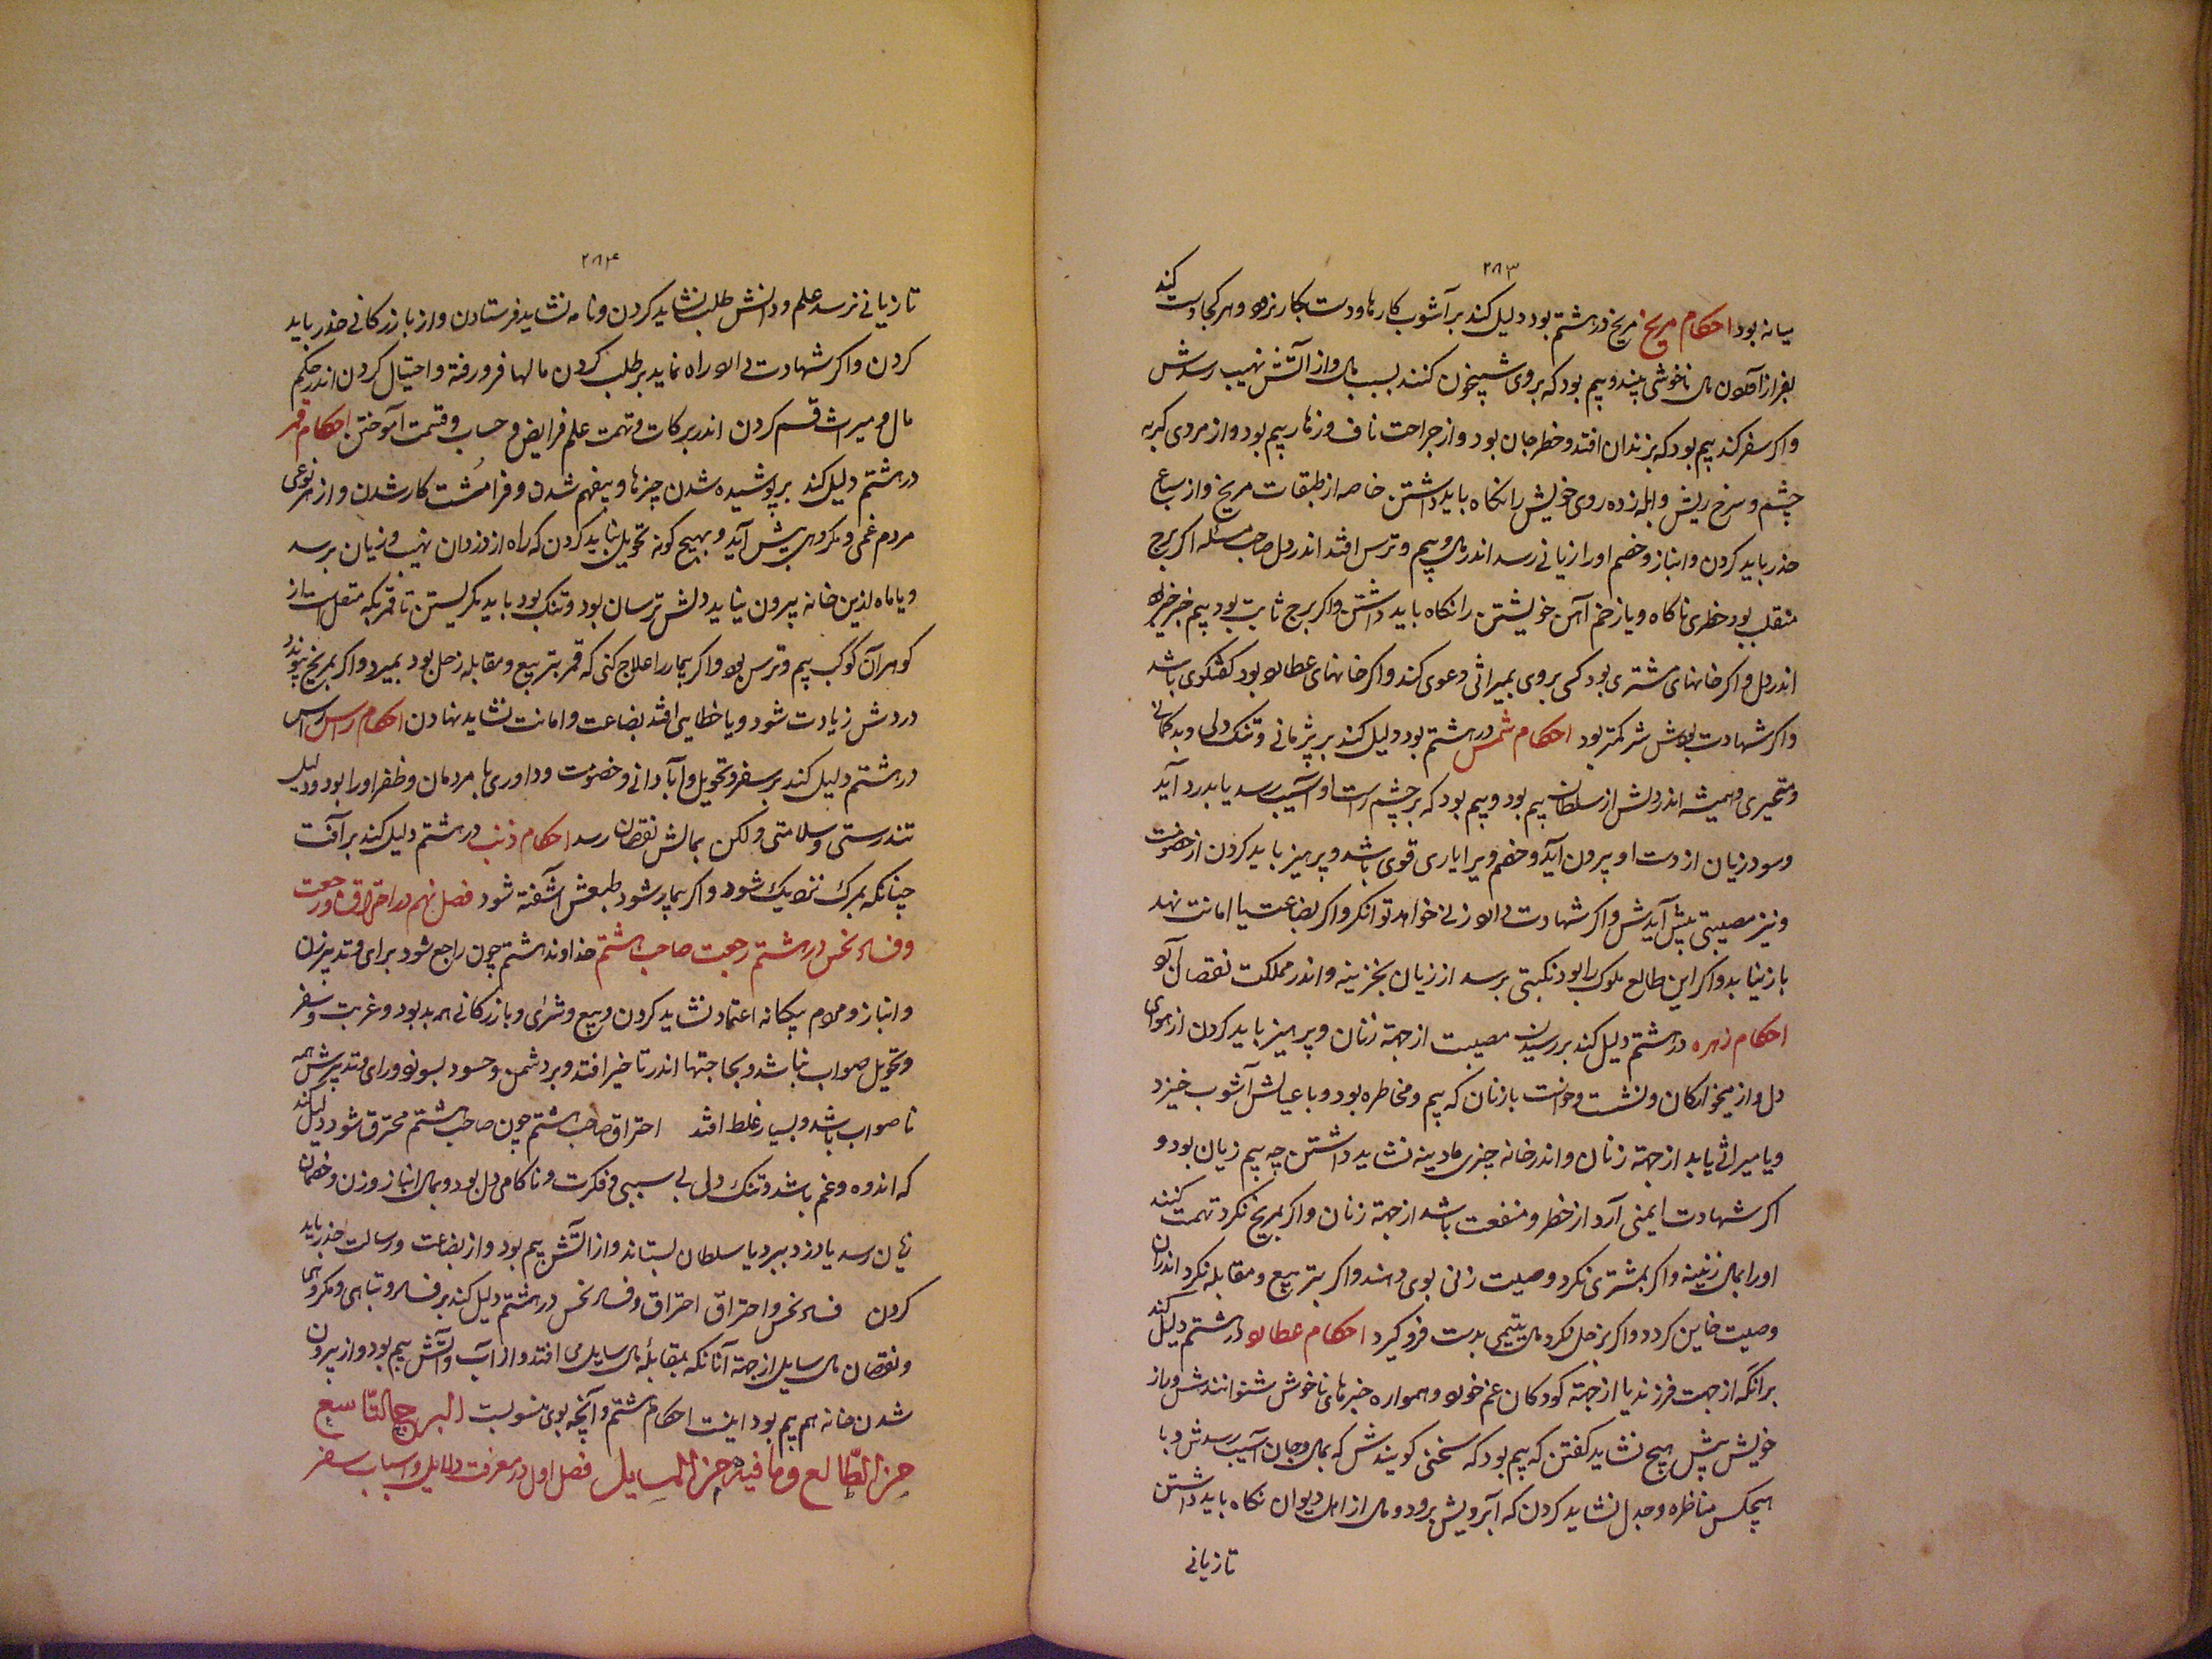 ۲۸۳
میانه بود احکام مریخ مریخ در هشتم بود دلیل کند بر آشوب کارها و دست بکار نزند و هر کجا دست کند
بفراز آمدن مال ناخوشی بیند و بیم بود که بروی شبیخون کنند بسبب مال و از آتش نهیب رسدش
و اکر سفر کند بیم بود که بزندان افتد و خطر جان بود و از جراحت ناف و زهار بیم بود و از مردی کربه
چشم و سرخ ریش و ابله زده روی خویش را نکاه باید داشتن خاصه از طبقات مریخ و از سباع
حذر باید کردن و انباز و خصم او را زیانی رسد اندر مال و بیم و ترس افتد اندر دل صاحب مسئله اکر برج
منقلب بود خطری ناکاه و یا زخم آهن خویشتن را نکاه باید داشتن و اکر برج ثابت بود بیم
اندر دل و اکر خانهای مشتری بود کسی بروی بمیراثی دعوی کند و اکر خانهای عطارد بود کفتکوی باشد
و اکر شهادت بودش شر کمتر بود احکام شمس در هشتم بود دلیل کند بر پژمانی و تنک دلی و بدکمانی
و متحیری و همیشه اندر دلش از سلطان بیم بود و بیم بود که بر چشم راست او آسیب رسد یا بدرد آید
و سود زیان از دست او بیرون آید و خصم ویرا یاری قوی باشد و پرهیز باید کردن از خصومت
و نیز مصیبتی پیش آیدش و اکر شهادت دارد زنی خواهد توانکر و اکر بضاعت یا امانت نهد
باز نیابد و اکر این طالع ملوک را بود نکبتی برسد از زیان بخزینه و اندر مملکت نقصان آن بود
احکام زهره در هشتم دلیل کند بر رسیدن مصیبت از جهة زنان و پرهیز باید کردن از هوای
دل و از میخوارکان و نشست و خاست با زنان که بیم و مخاطره بود و با عیالش آشوب خیزد
و یا میراثی یابد از جهة زنان و اندر خانه چیزی مادینه نشاید داشتن چه بیم زیان بود و
اکر شهادت ایمنی آرد از خطر و منفعت باشد از جهة زنان و اکر بمریخ نکرد تهمت کنند
او را بمال زنینه و اکر بمشتری نکرد وصیت زنی بوی دهند و اکر بتربیع و مقابله نکرد اندران
وصیت خاین کردد و اکر بزحل نکرد مال یتیمی بدست فرو کیرد احکام عطارد در هشتم دلیل کند
برانکه از جهت فرزند یا از جهة کودکان غم خورد و همواره خبرهای ناخوش شنوانندش و راز
خویش پیش هیچ نشاید کفتن که بیم بود که سخنی کویندش که بمال و جان آسیب رسدش و با
هیچکس مناظره و جدل نشاید کردن که آبرویش برود و مال از اهل دیوان نکاه باید داشتن
تا زیانی
۲۸۴
تا زیانی نرسد علم و دانش طلب نشاید کردن و نامه نشاید فرستادن و از بازرکانی حذر باید
کردن و اکر شهادت دارد راه نماید بر طلب کردن مالها فرو رفته و احتیال کردن اندر حکم
مال و میراث قسم کردن اندر برکات و تهمت علم فرایض و حساب و قسمت آموختن احکام قمر
در هشتم دلیل کند بر پوشیده شدن چیزها و بیفهم شدن و فرامُشت کار شدن و از هر نوعی
مردم غمی و مکروهی پیش آید و بهیچ کونه تحویل نباید کردن که راه از دزدان نهیب و زیان برسد
و یا ماه ازین خانه بیرون نیاید دلش ترسان بود و تنک بود باید نکریستن تا قمر بکه متصل است از
کوهر آن کوکب بیم و ترس بود و اکر بیمار را علاج کنی که قمر بتربیع و مقابله زحل بود بمیرد و اکر بمریخ پیوندد
دردش زیادت شود و یا خطایی افتد بضاعت و امانت نشاید نهادن احکام راس راس
در هشتم دلیل کند بر سفر و تحویل و آبادانی و خصومت و داوری با مردمان و ظفر او را بود و دلیل
تندرستی و سلامتی ولکن بمالش نقصان رسد احکام ذنب در هشتم دلیل کند بر آفت
چنانکه بمرک نزدیک شود و اکر بیمار شود طبعش آشفته شود فصل نهم در احتراق و رجعت
و فساد نحس در هشتم رجعت صاحب هشتم خداوند هشتم چون راجع شود برای و تدبیر زن
و انباز و مردم بیکانه اعتماد نشاید کردن و بیع و شرٰی و بازرکانی همه بد بود و غربت و سفر
و تحویل صواب نباشد و بحاجتها اندر تاخیر افتد و بر دشمن و حسود بسوزد و رای و تدبیرش همه
ناصواب باشد و بسیار غلط افتد احتراق صاحب هشتم چون صاحب هشتم محترق شود دلیل کند
که اندوه و غم باشد و تنک دلی بی سببی و فکرت و ناکامی دل بود و بمال انباز و زن و خصمان
زیان رسد یا دزد ببرد یا سلطان بستاند و از آتش بیم بود و از بضاعت و رسالت حذر باید
کردن فساد نحس و احتراق احتراق و فساد نحس در هشتم دلیل کند بر فساد و تباهی و مکروهی
و نقصان مال سایل از جهة آنانکه بمقابلهٔ مال سایل می افتد و از آب و آتش بیم بود و از بیرون
شدن خانه هم بیم بود اینست احکام هشتم و آنچه بوی منسوبست البرج التّاسع
من الطّالع وما فیه من المسایل فصل اول در معرفت دلایل و اسباب سفر